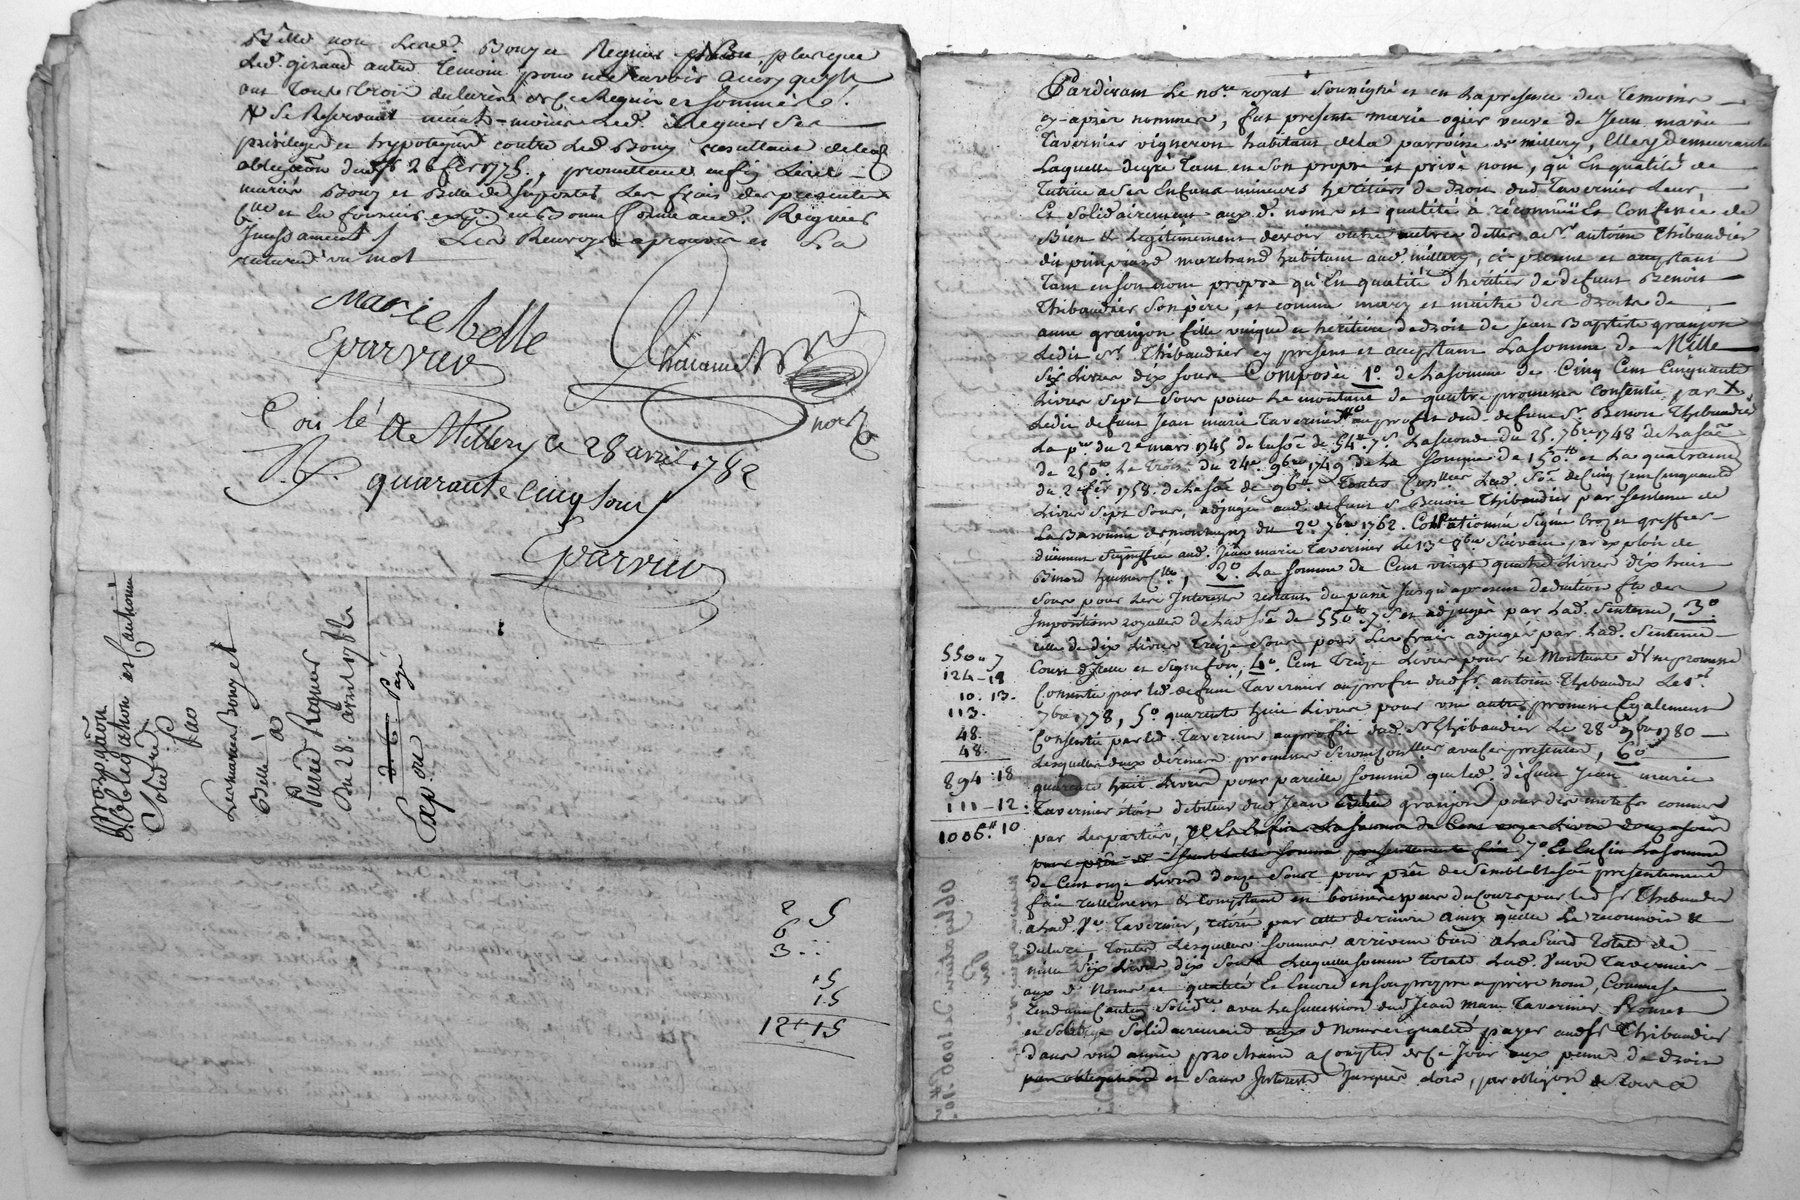 Belle non led. Bouyet Regnier plus que
led. giraud autre temoin pour ne le savoir ainsy qu'ils
ont tous trois declaré de ce Requis et sommés
Se Reservant neant-moins led. Regnier ses
privileges et hypoteques contre led. Bouy resultant de lad.
obligaõn du 26 fer 1775, promettant enfin lesd.
mariés Bouy et Belle de suporter les frais des presentes
et en fournir expé. en Bonne forme aud. Regnier
Incessament
marie belle
Eparvier
nore
Con lé A Millery ce 28 avril 1782
R. f. quarante cinq sous
Eparvier
Prorogãon
d'obligation et Cautionnt
Solidaire
Les mariés Bouyet
Belle à
Pierre Regnier
Du 28. avril 1782
Exp. ou Payé
2 5
6
3 ..
15
15
12 15
Pardevant le nore royal soussigné et en la presence des temoins
cy-après nommés, fut presente marie ogier veuve de Jean marie
Tavernier vigneron habitant de la parroisse de millery, Elle y demeurante
Laquelle de gré tant en son propre et privé nom, qu'En qualité de
tutrice a ses Enfans mineurs heritiers de droit dud. Tavernier leur
Et solidairement aux d. noms et qualité à reconnü Et Confessé de
Bien & legitimement devoir outre autres dettes a sr. antoine Thibaudier
dit pimpant marchand habitant aud. millery, cy present et acceptant
tant en son nom propre qu'En qualité d'heritier de defunt Benoit
Thibaudier son père, et comme mary et maitre des droits de
anne granjon fille unique et heritiere de droit de Jean Baptiste granjon
ledit sr. Thibaudier cy present et acceptant La somme de Mille
Six Livres dix sous Composée 1o de la somme de Cinq Cent Cinquante
livres sept sous pour le montant de quatre promesses consentie par
ledit defunt Jean marie Tavernier au profit dud. defunt Sr Benoit Thibaudier
La pre. du 2e mars 1745 de la sõe de 54tt 7s. La seconde du 25. 7bre 1748 de la sõe
de 250tt La trois. du 24e. 9bre 1749 de la somme de 150tt et La quatrieme
du 2 fer. 1758. de la sõe de 96tt Lad. sõe de Cinq Cent Cinquante
Livres Sept Sous, adjugée aud. defunt Sr Benoit Thibaudier par sentence de
La Baronnie de montagny du 2e 7bre 1762. Signée Croz et greffier
düement signiffiée aud. Jean marie Tavernier le 13e 8bre Suivant par exploit de
Binard huissier, 2o La somme de Cent vingt quatre livres dix huit
Sous pour les Interests restants du passé Jusqu'à present deduction fte des
Impositions royalles de lad. sõe de 550tt 7s et adjugée par lad. sentence, 3o
celle de dix livres treize sous pour les frais adjugés par lad. Sentence
Cout d'Icelle et signifon, 4o Cent treize Livres pour le Montant d'Une promesse
Consentie par led. defunt Tavernier au profit dud. sr. antoine Thibaudier le 1er
7bre 1778, 5o quarante huit livres pour une autre promesse Egalement
Consentie par led. Tavernier au profit dud. Sr Thibaudier le 28e 9bre 1780
Lesquelles deux derniere promesses avec ces presentes, 6o
quarante huit livres pour pareille somme que led. defunt Jean marie
Tavernier étoit debiteur dud. Jean granjon pour des motifs connus
par les parties, Et Enfin la somme de Cent onze Livres douze sous
pour prêt de semblable somme presentement fait 7o Et Enfin la somme
de Cent onze Livres douze Sous pour prêt de semblable sõe presentement
fait reellement & Comptant en bonnes especes du Cours par led sr Thibaudier
a lad. Ve. Tavernier, retiré par cette derniere ainsy qu'elle le reconnoit &
declare, toutes Lesquelles sommes arrivent bien a la susd. totale de
mille six livres dix sous Laquelle somme totale lad. veuve Tavernier
aux d. Noms et qualité Et Encore en son propre et privé nom, Comme se
rendant Caution solidre. avec la succession dud. Jean marie Tavernier Promet
et s'oblige Solidairement aux d. noms et qualité payer aud. sr Thibaudier
dans une année prochaine a Compter de Ce Jour aux peines de droit
par obligations et sans Interests Jusques alors, par obligaõn de tous &
550 " 7
124 - 18
10. 13.
113.
48.
48.
894 : 18
111 - 12
1006.tt 10
Obligation de 1006tt 10s